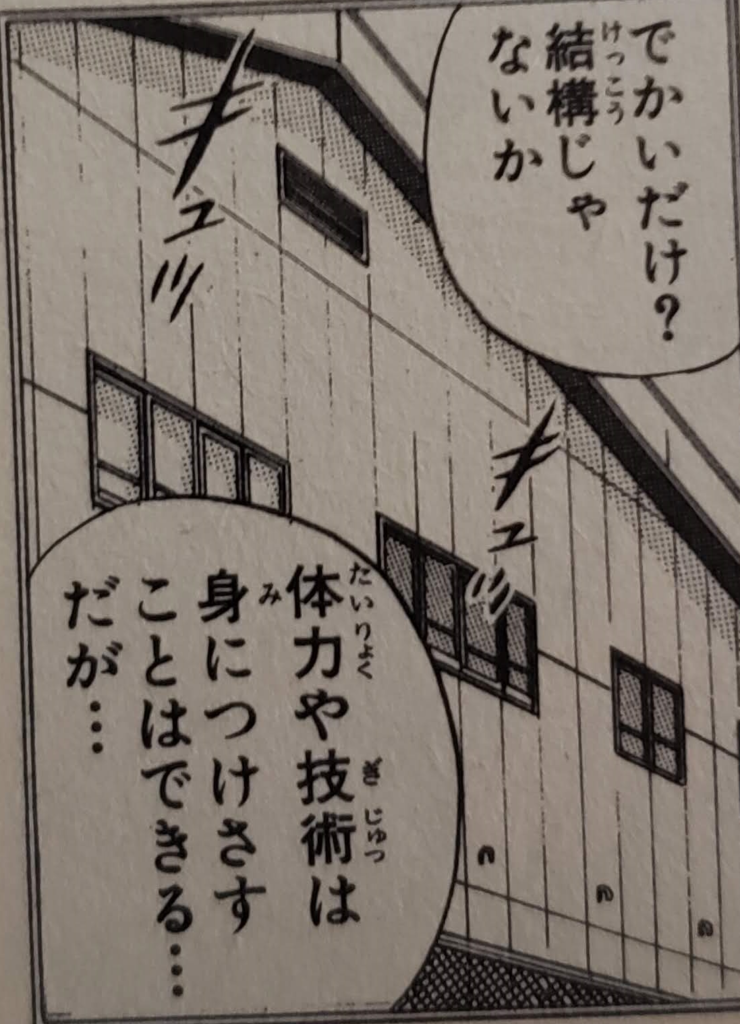 でかいだけ?
結構じゃ
ないか
キュッ
キュッ
体力や技術は
身につけさす
ことはできる…
だが…